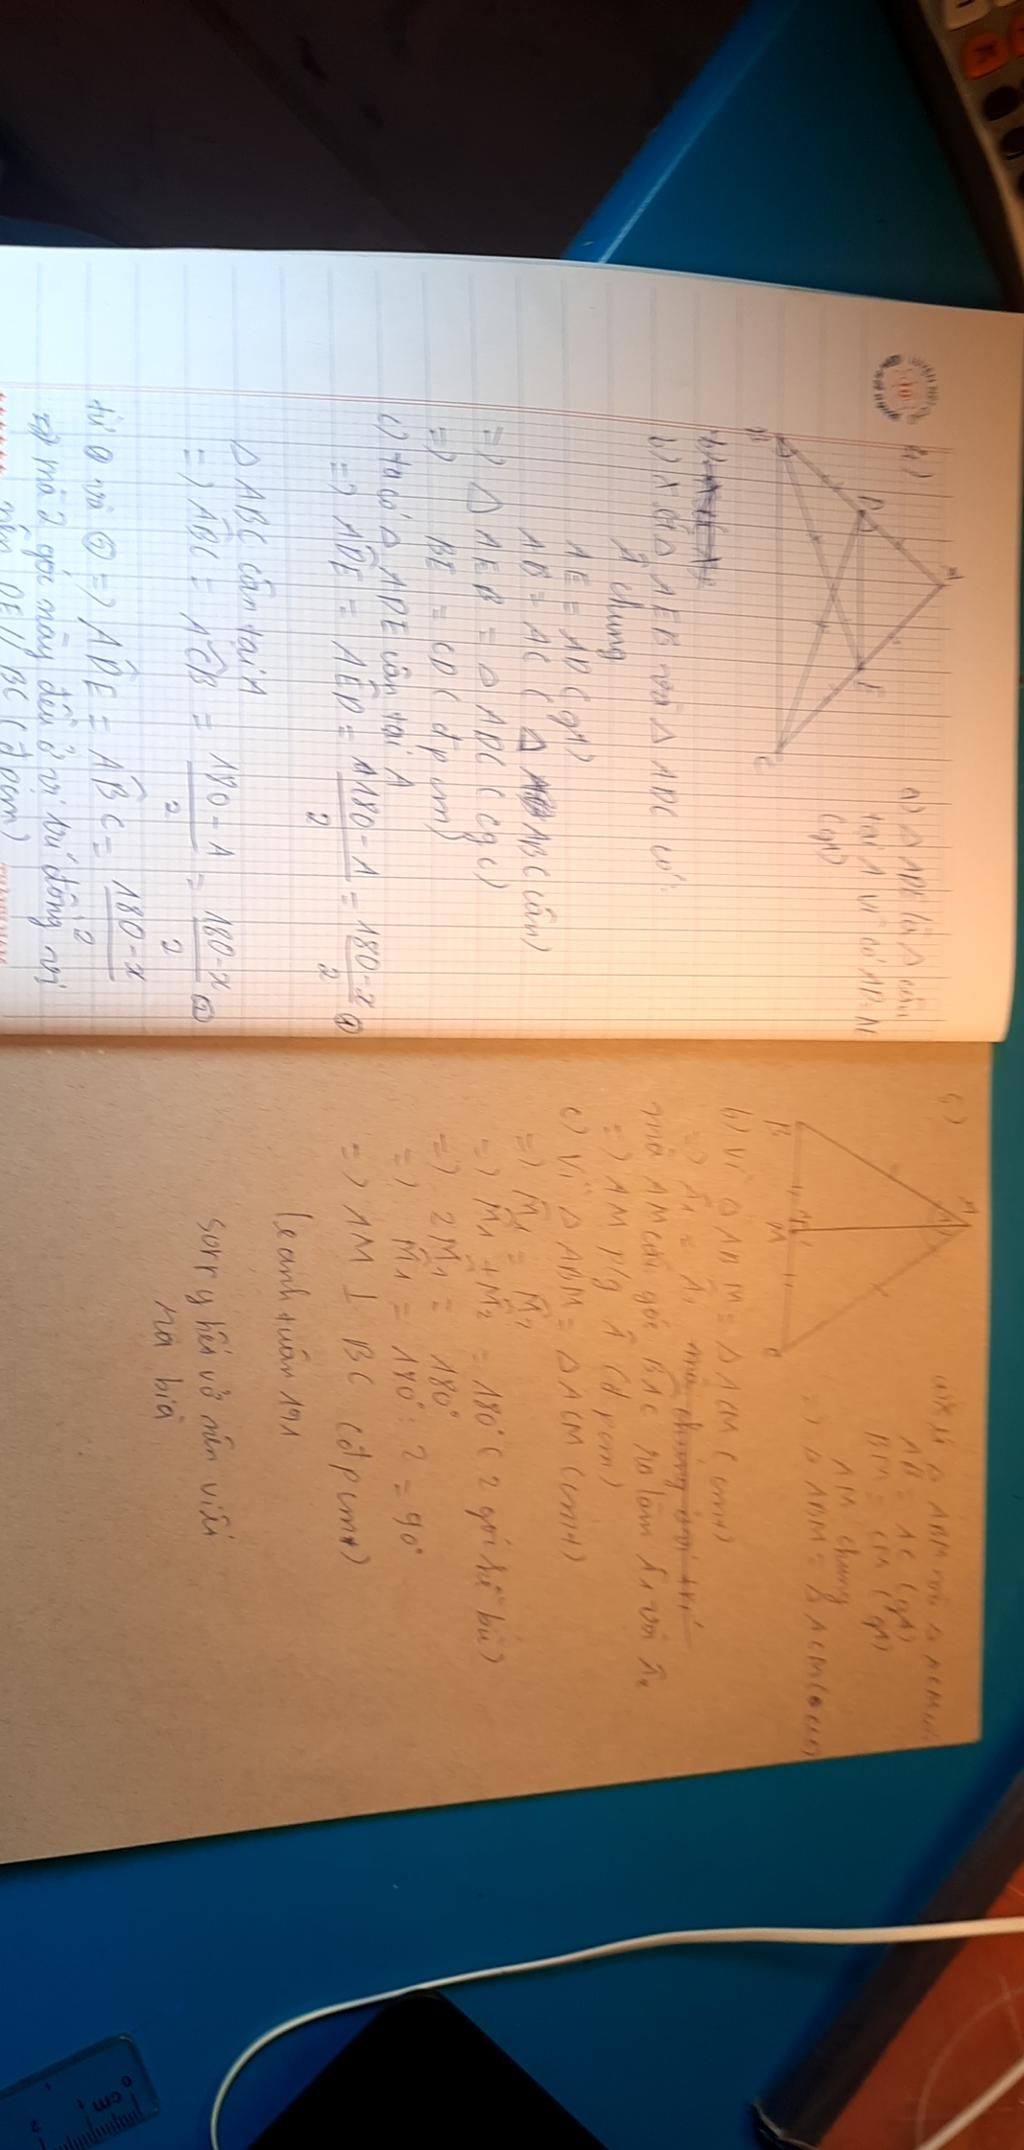 a) Δ ADE là Δ cân
tại A vì có AD=AE
(gt)
A
D
E
B
C
b) xét Δ AEB với Δ ADC có:
Â chung
AE = AD (gt)
AB = AC (Δ ABC cân)
=) Δ AEB = Δ ADC (cgc)
=) BE = CD (đpcm)
c) ta có Δ ADE cân tại A
=) AD̂E = AÊD = 180-A/2 = 180-x/2 ①
Δ ABC cân tại A
=) AB̂C = AĈB = 180-A/2 = 180-x/2 ②
từ ① và ② =) AD̂E = AB̂C = 180-x/2
mà 2 góc này đều ở vị trí đồng vị
nên DE // BC (đpcm)
5)
A
B
M
C
xét Δ ABM với Δ ACM có
AB = AC (gt)
BM = CM (gt)
AM chung
=) Δ ABM = Δ ACM (ccc)
b) Vì Δ ABM = Δ ACM (cmt)
=) Â1 = Â2
mà AM cắt góc BÂC ra làm Â1 và Â2
=) AM p/g Â (đpcm)
c) Vì Δ ABM = Δ ACM (cmt)
=) M̂1 = M̂2
=) M̂1 + M̂2 = 180° (2 góc kề bù)
=) 2M̂1 = 180°
=) M̂1 = 180° : 2 = 90°
=) AM ⊥ BC (đpcm)
leanhtuân 191
sorry hết vở nên viết
ra bìa
0 cm 1
2